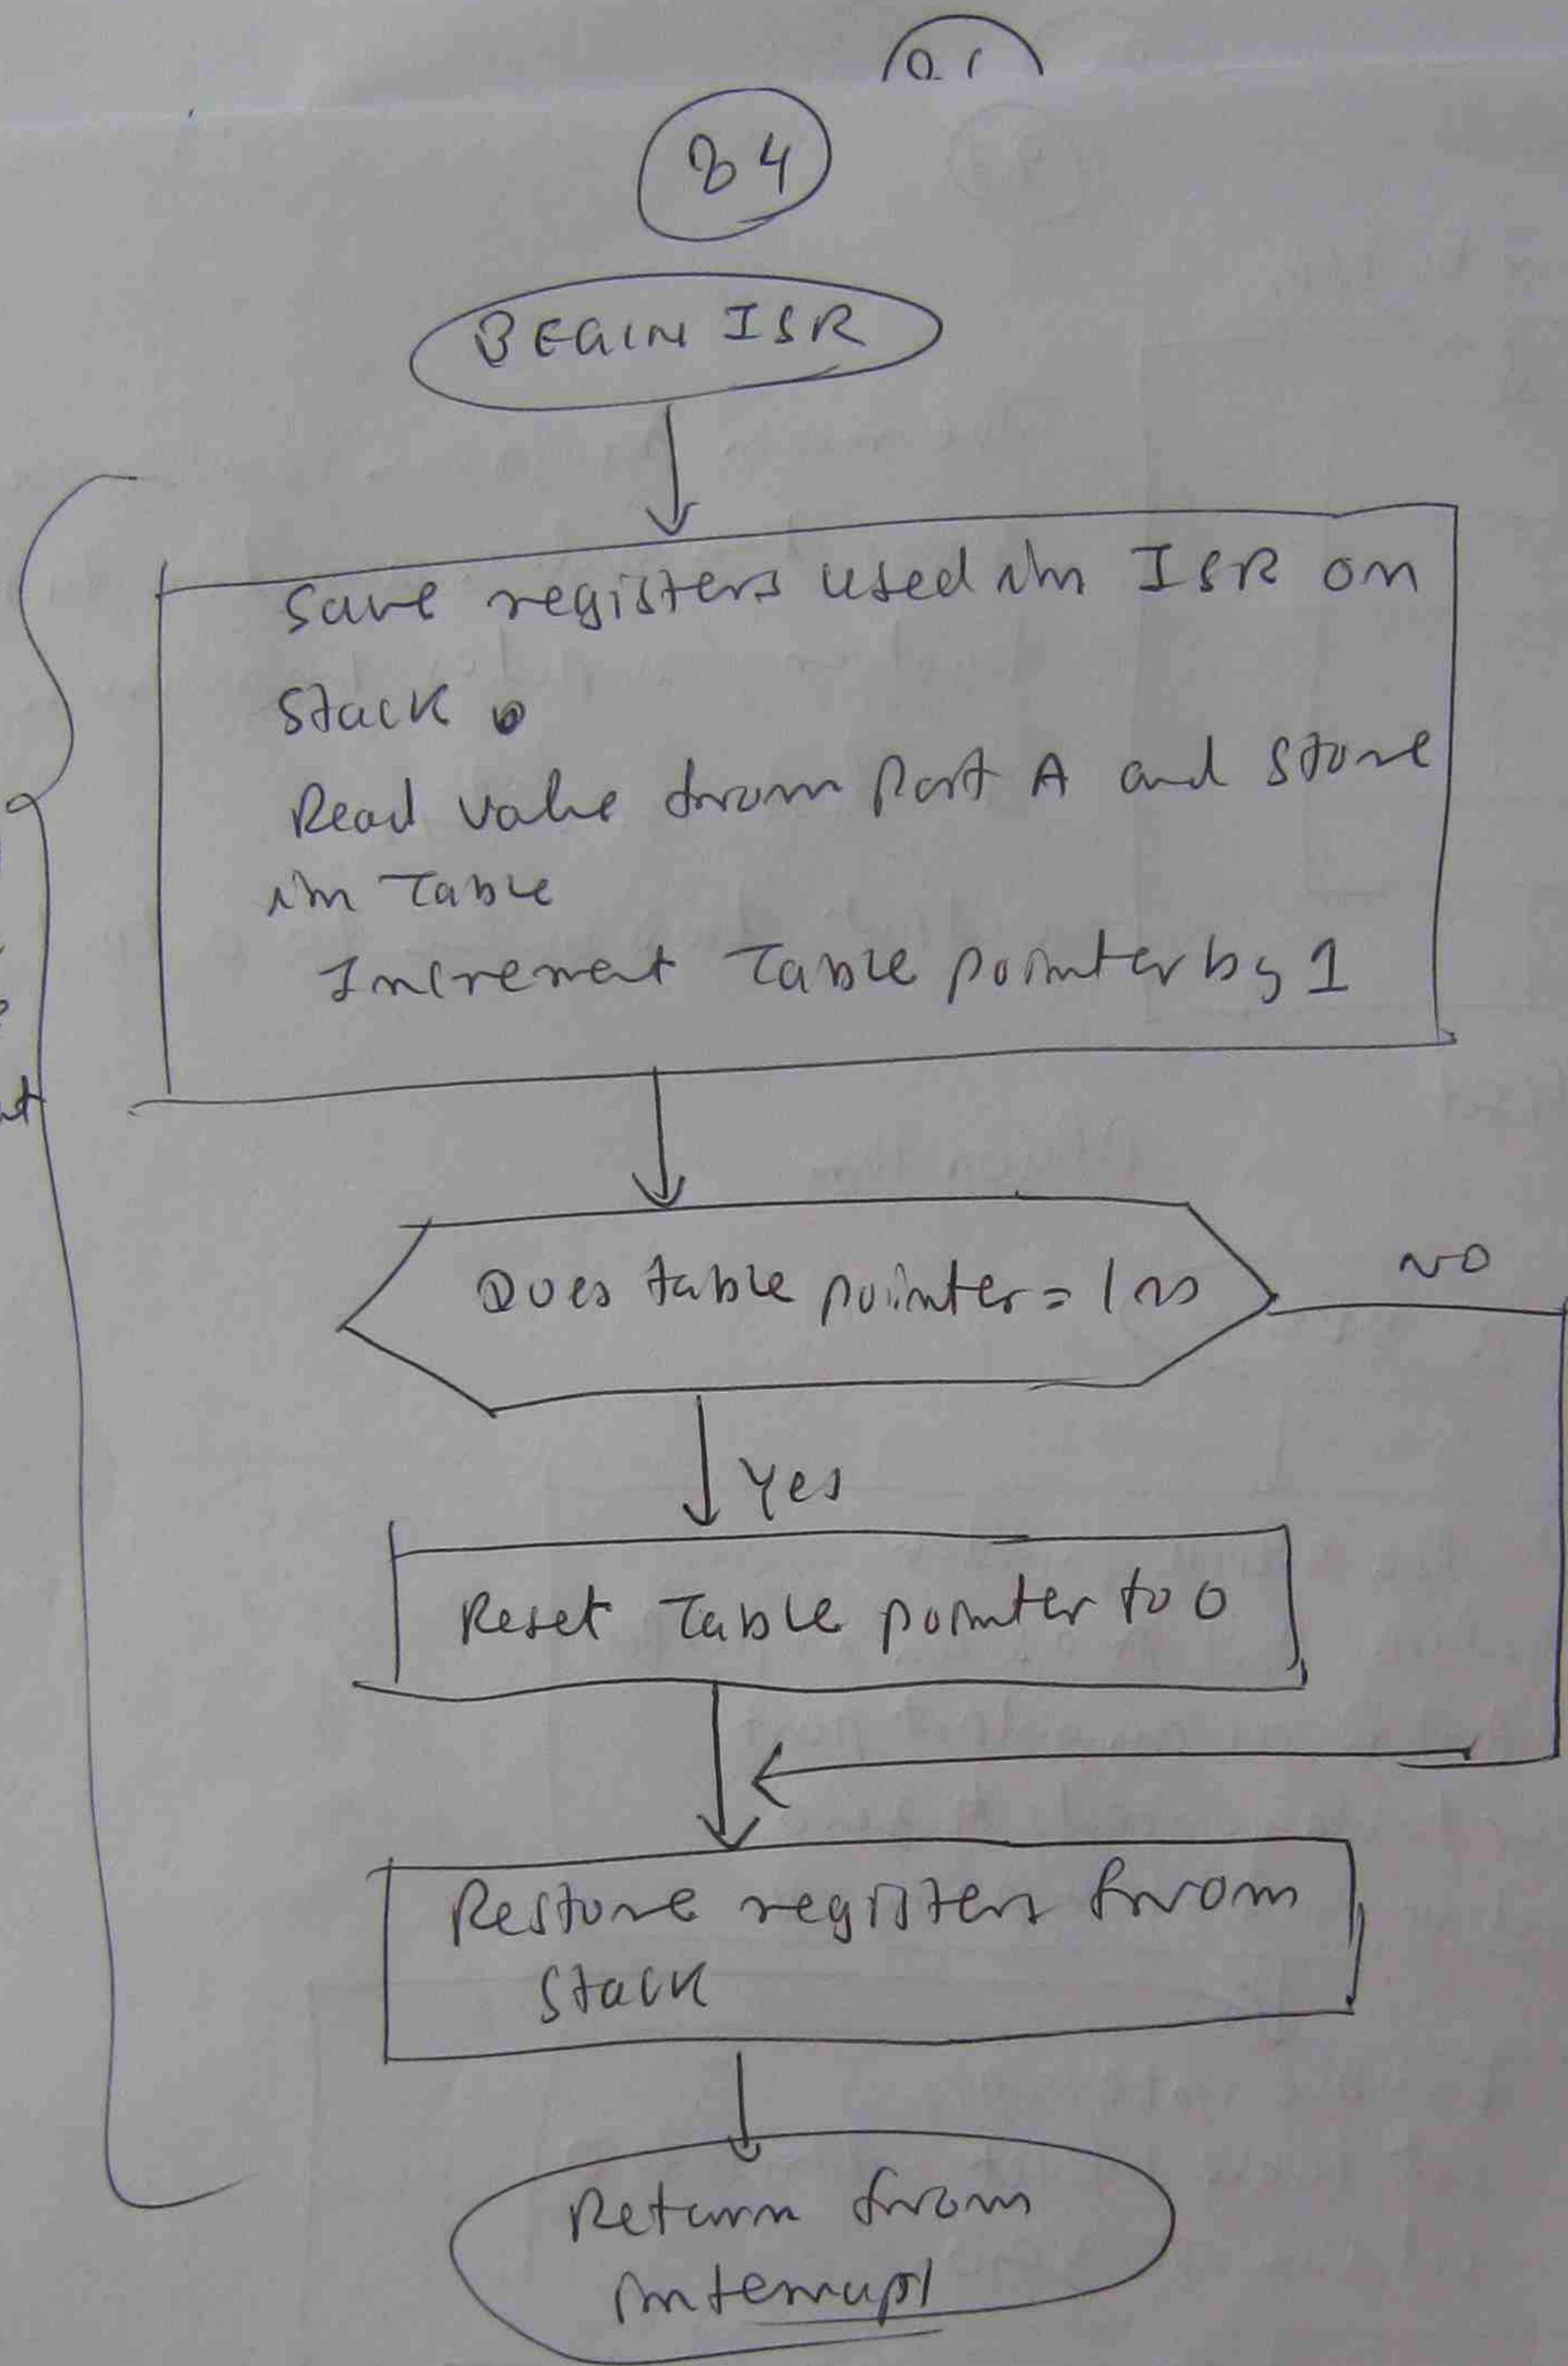 84
BEGIN ISR
Save registers used in ISR on
Stack
Read value from Port A and store
in Table
Increment Table pointer by 1
Does table pointer =
NO
Yes
Reset Table pointer to 0
Restore registers from
Stack
Return from
interrupt